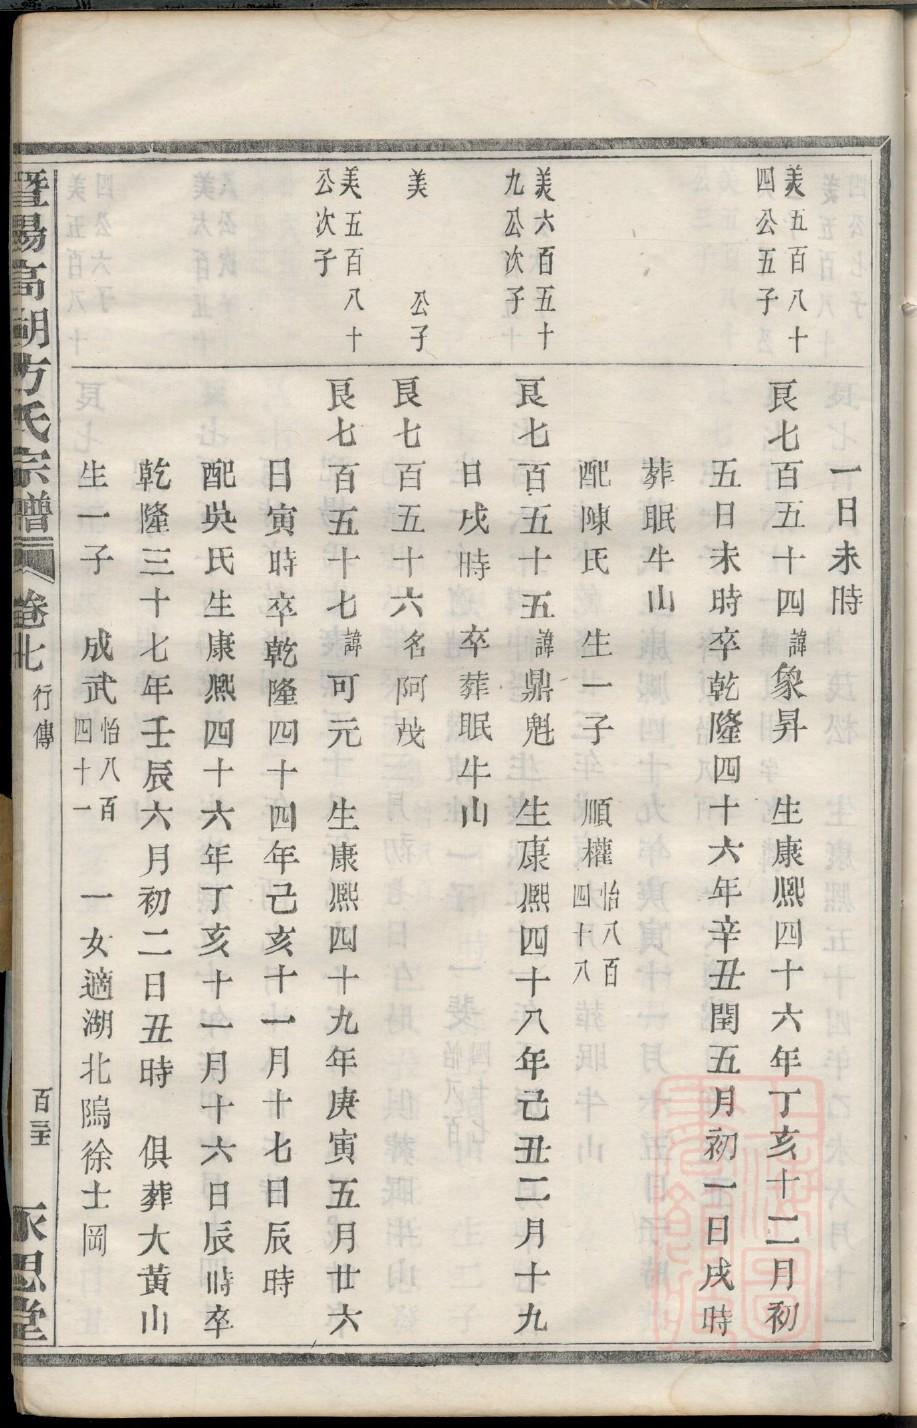 一日未時
美五百八十
四公五子
良七百五十四諱象昇　生康熙四十六年丁亥十二月初
五日未時卒乾隆四十六年辛丑閏五月初一日戌時
葬眠牛山
配陳氏　生一子　順權怡八百四十八
美六百五十
九公次子
良七百五十五諱鼎魁　生康熙四十八年己丑二月十九
日戌時　卒葬眠牛山
美　公子
良七百五十六名阿茂
美五百八十
公次子
良七百五十七諱可元　生康熙四十九年庚寅五月廿六
日寅時卒乾隆四十四年己亥十一月十七日辰時
配吳氏生康熙四十六年丁亥十一月十六日辰時卒
乾隆三十七年壬辰六月初二日丑時　俱葬大黃山
生一子　成武怡八百四十一　一女適湖北隖徐士岡
暨陽高湖方氏宗譜　卷七　行傳　永思堂